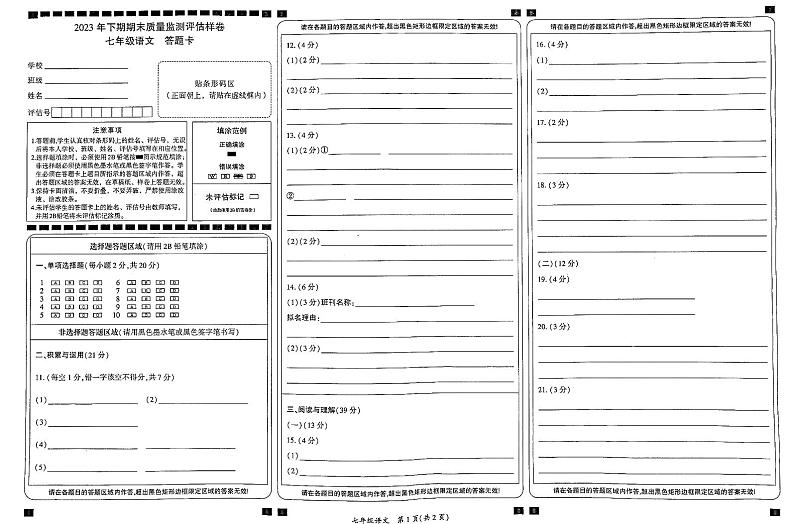 2023 年下期期末质量监测评估样卷
七年级语文 答题卡
学校
班级
姓名
评估号
贴条形码区
(正面朝上，请贴在虚线框内)
注意事项
1.答题前,学生认真核对条形码上的姓名、评估号、无误
后将本人学校、班级、姓名、评估号填写在相应位置。
2.选择题填涂时，必须使用2B铅笔按 图示规范填涂；
非选择题必须使用黑色墨水笔或黑色签字笔作答。学
生必须在答题卡上题目所指示的答题区域内作答，超
出答题区域的答案无效，在草稿纸、样卷上答题无效。
3.保持卡面清洁，不要折叠，不要弄破，严禁使用涂改
液、涂改胶条。
4.未评估学生的答题卡上的姓名、评估号由教师填写，
并用2B铅笔将未评估标记涂黑。
填涂范例
正确填涂
错误填涂
未评估标记
选择题答题区域(请用2B铅笔填涂)
一、单项选择题(每小题2分,共20分)
1 A B C D 6 A B C D
2 A B C D 7 A B C D
3 A B C D 8 A B C D
4 A B C D 9 A B C D
5 A B C D 10 A B C D
非选择题答题区域(请用黑色墨水笔或黑色签字笔书写)
二、积累与运用(21分)
11.(每空1分,错一字该空不得分,共7分)
(1) (2)
(3)
(4)
(5)
请在各题目的答题区域内作答,超出黑色矩形边框限定区域的答案无效!
请在各题目的答题区域内作答,超出黑色矩形边框限定区域的答案无效!
12.(4分)
(1)(2分)
(2)(2分)
13.(4分)
(1)(2分)①
②
(2)(2分)
14.(6分)
(1)(3分)班刊名称:
拟名理由:
(2)(3分)
三、阅读与理解(39分)
(一)(13分)
15.(4分)
(1)
(2)
请在各题目的答题区域内作答,超出黑色矩形边框限定区域的答案无效!
请在各题目的答题区域内作答,超出黑色矩形边框限定区域的答案无效!
16.(4分)
(1)
(2)
17.(2分)
18.(3分)
(二)(12分)
19.(4分)
20.(3分)
21.(3分)
请在各题目的答题区域内作答,超出黑色矩形边框限定区域的答案无效!
七年级语文 第1页(共2页)